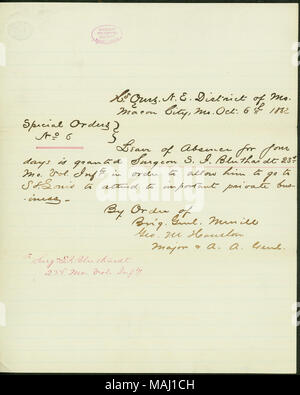 Hd Qurs, N. E. District of Mo.
Macon City, Mo. Oct. 6th 1862
Special Orders
No 6
Leave of Absence for four
days is granted Surgeon S. I. Bluthardt 23d
Mo. Vol Infty in order to allow him to go to
St Louis to attend to important private bus-
iness.
By Order of
Brig. Genl. Merrill
Geo. M Houston
Major & A. A. Genl.
Surg Bluthardt
23d Mo Vols Infty
alamy
Image ID: MAJ1CH
www.alamy.com